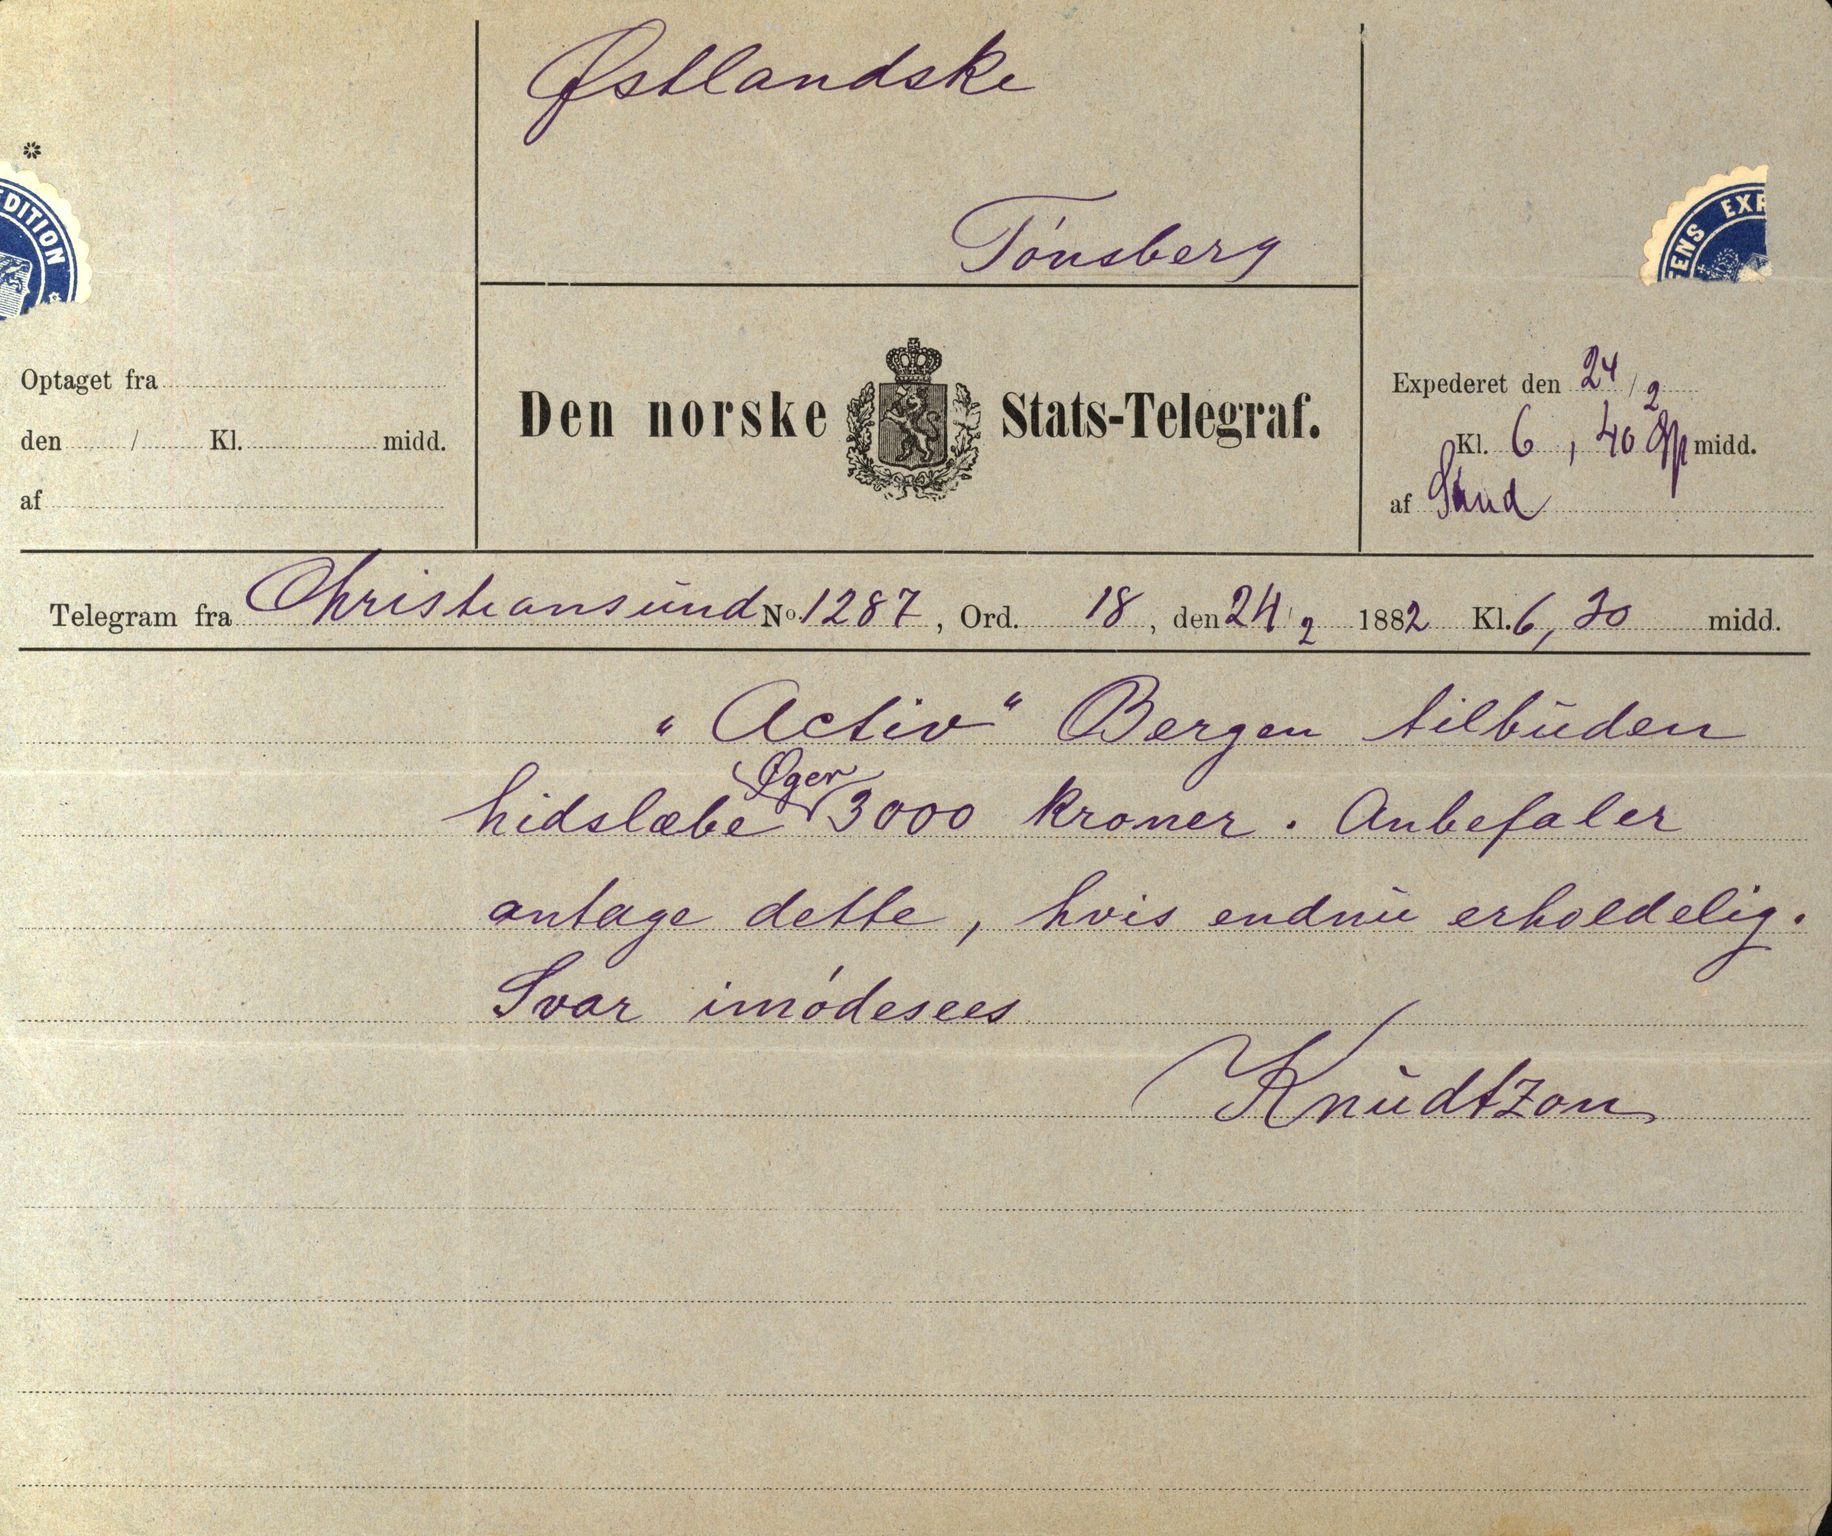 Østlandske
Tønsberg
*
EDITION
ENS EXP
Optaget fra
den / Kl. midd.
af
Den norske Stats-Telegraf.
Expederet den 24/2
Kl. 6, 40 midd.
af Sund
Telegram fra Christiansund No. 1287, Ord. 18, den 24/2 1882 Kl. 6, 30 midd.
"Activ" Bergen tilbuden
hidslæbe Øger 3000 kroner. Anbefaler
antage dette, hvis endnu erholdelig.
Svar imødesees
Knudtzon